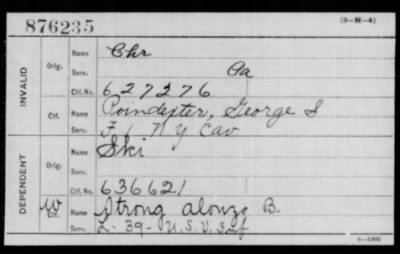 876235 (3-M-4)
INVALID
Orig. Name Chr
Serv. Pa
Ctf. No. 627276
Ctf. Name Poindexter, George S
Serv. F 1 N Y Cav
DEPENDENT
Orig. Name Ski
Serv.
Ctf. No. 636621
W Ctf. Name Strong Alonzo B.
Serv. L- 39- U.S.V. Inf